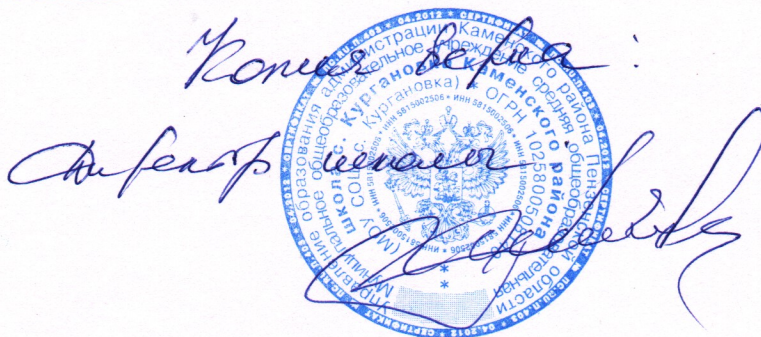 Копия верна:
Директор школы:
Управление образования администрации Каменского района Пензенской области
Муниципальное общеобразовательное учреждение средняя общеобразовательная
школа с. Кургановка Каменского района
(МОУ СОШ с. Кургановка) * ОГРН
ИНН 5815002506 * ИНН 5815002506 * ИНН 5815002506
* СЕРТИФИКАТ * 04.2012 *